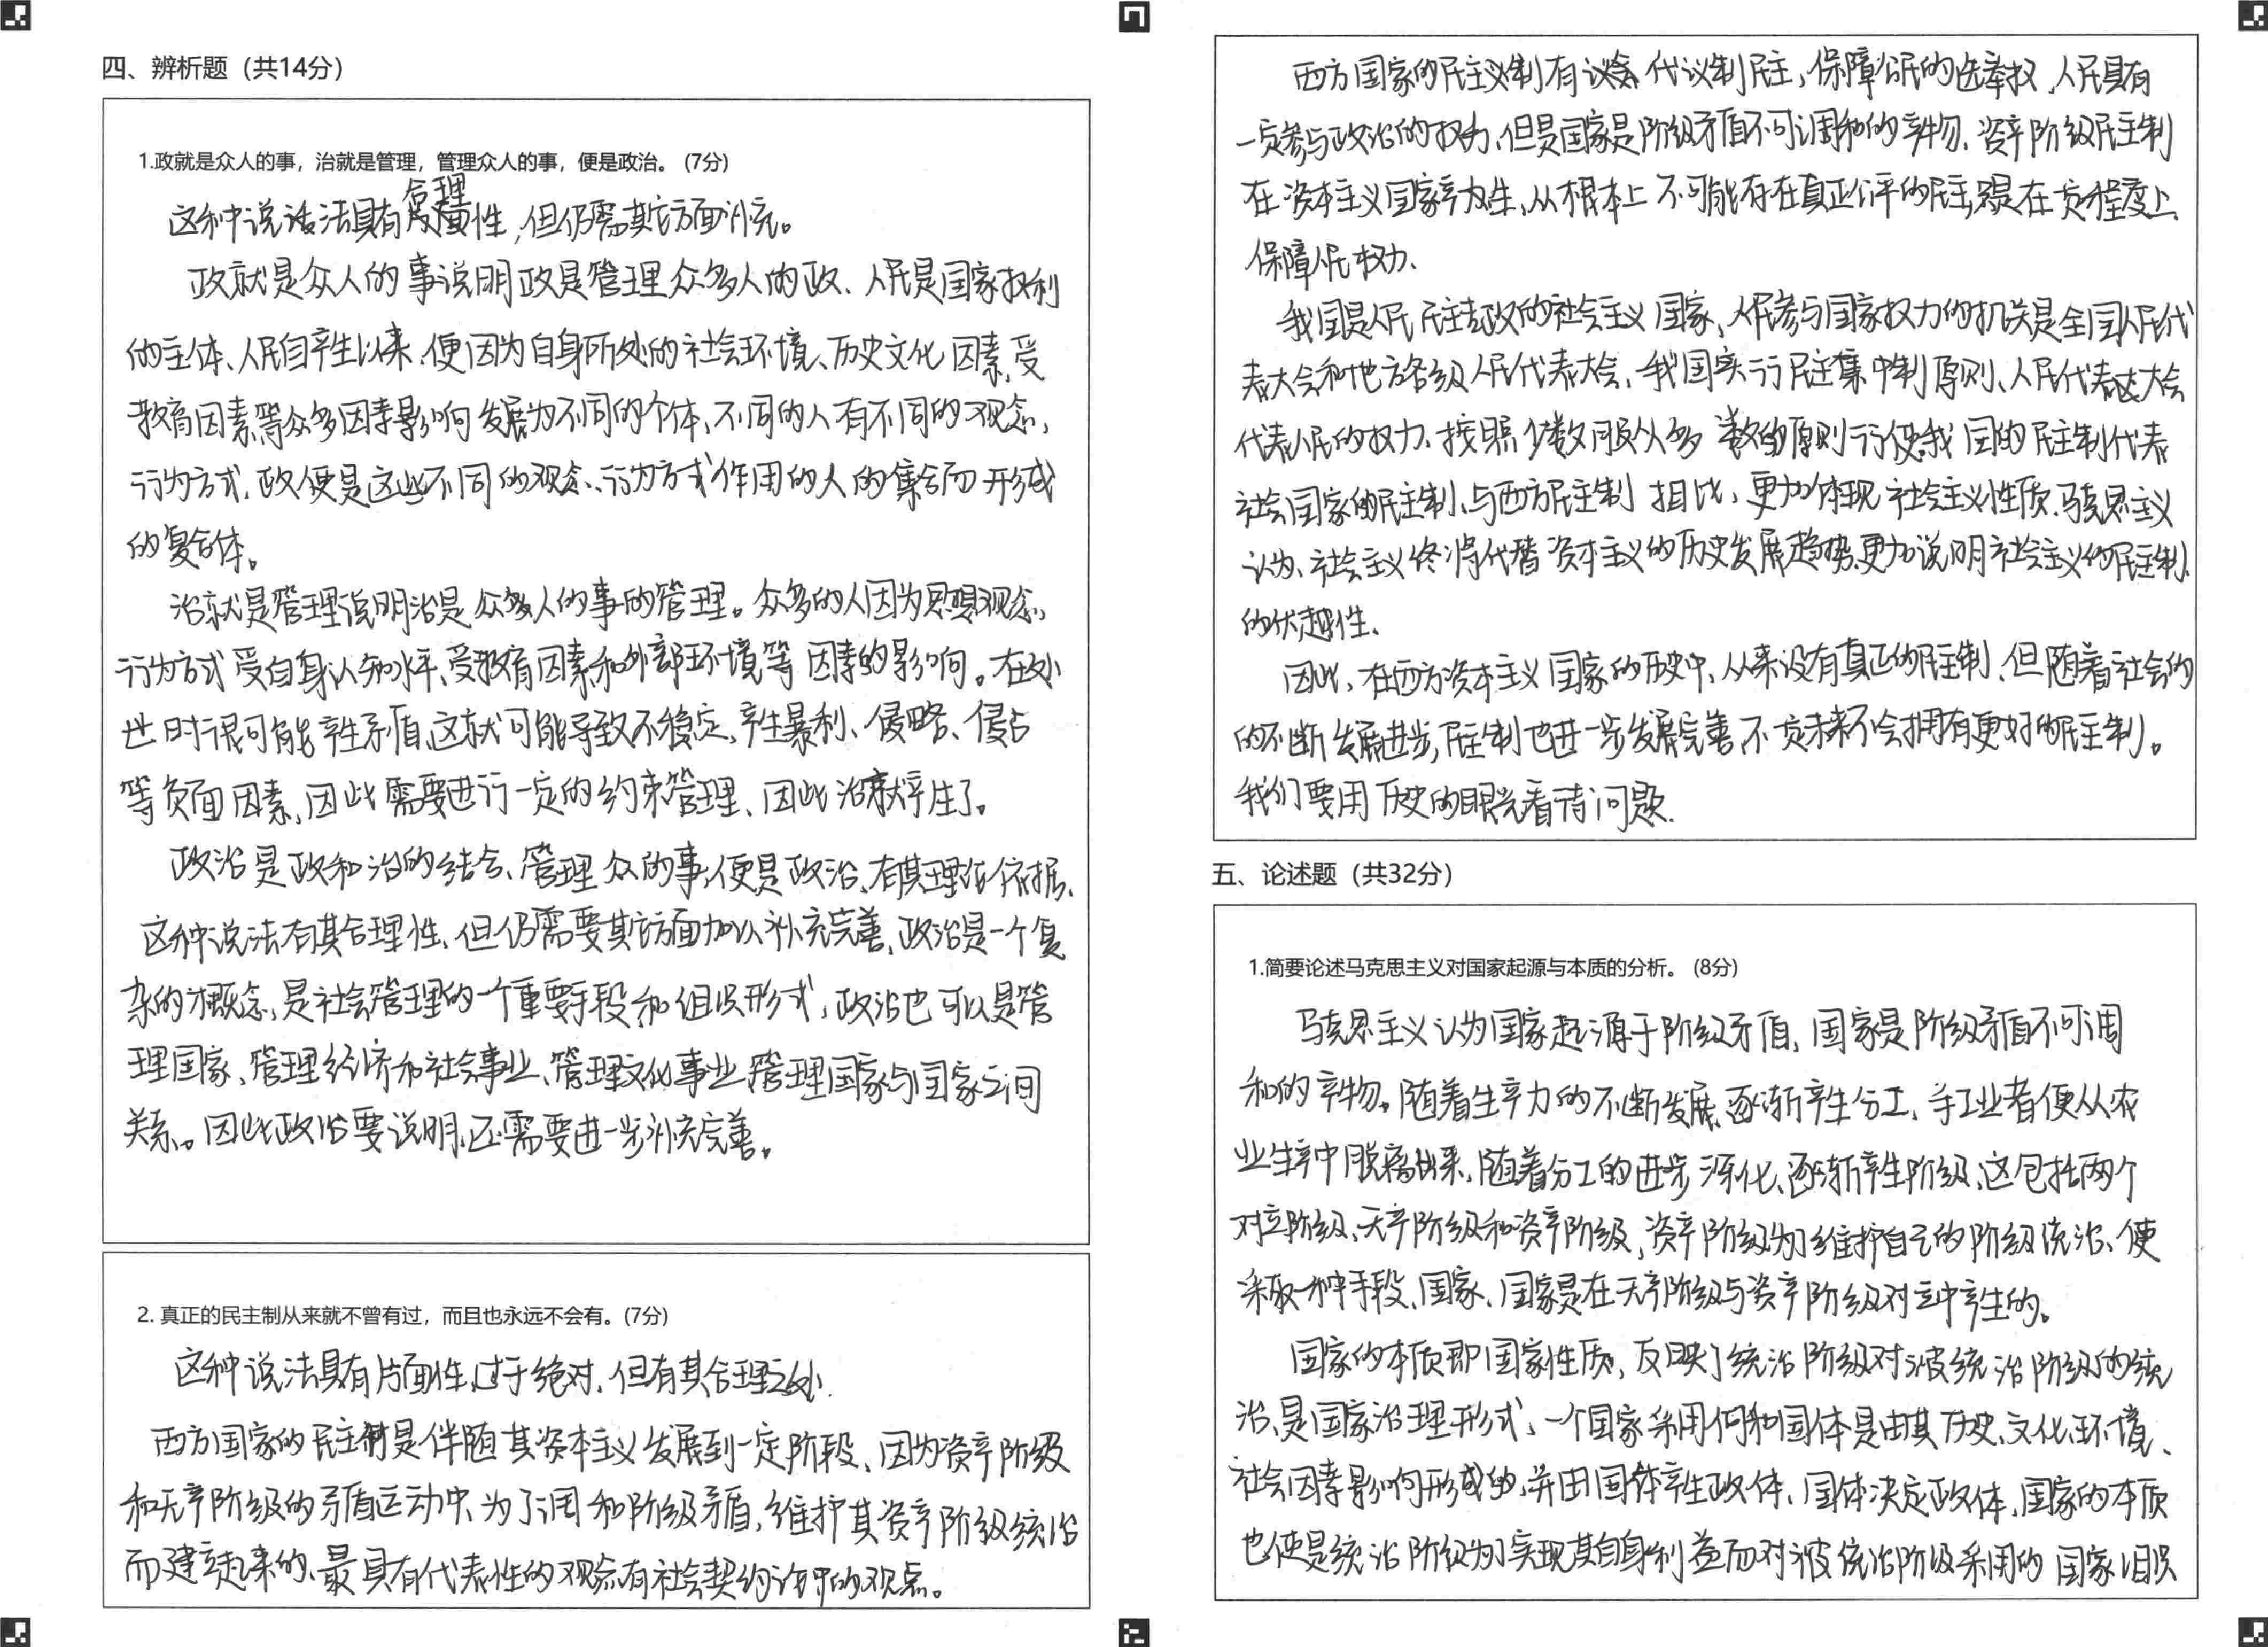 四、辨析题（共14分）
1.政就是众人的事，治就是管理，管理众人的事，便是政治。 (7分)
合理
这种说法具有性，但仍需其它方面补充。
政就是众人的事说明政是管理众多人的政、人民是国家权利
的主体、人民自产生以来、便因为自身所处的社会环境、历史文化因素、受
教育因素等众多因素影响发展为不同的个体、不同的人有不同的观念，
行为方式，政便是这些不同的观念、行为方式作用的人的集合而形成
的复合体。
治就是管理说明治是众多人的事的管理。众多的人因为思想观念，
行为方式受自身认知水平、受教育因素和外部环境等因素的影响。在处
世时很可能产生矛盾，这就可能导致不稳定，产生暴利、侵略、侵占
等负面因素，因此需要进行一定的约束管理、因此治就产生了。
政治是政和治的结合、管理众的事，便是政治、有其理论依据、
这种说法有其合理性、但仍需要其它方面加以补充完善，政治是一个复
杂的概念，是社会管理的一个重要手段和组织形式，政治也可以是管
理国家、管理经济和社会事业、管理文化事业、管理国家与国家之间
关系。因此政治要说明，还需要进一步补充完善。
2. 真正的民主制从来就不曾有过，而且也永远不会有。(7分)
这种说法具有片面性，过于绝对、但有其合理之处.
西方国家的民主制是伴随其资本主义发展到一定阶段、因为资产阶级
和无产阶级的矛盾运动中、为了调和阶级矛盾，维护其资产阶级统治
而建立起来的、最具有代表性的观点有社会契约论中的观点。
西方国家的民主义制有议会代议制民主，保障公民的选举权，人民具有
一定参与政治的权力、但是国家是阶级矛盾不可调和的产物、资产阶级民主制
在资本主义国家产生，从根本上不可能存在真正公平的民主，只是在一定程度上
保障人民权力、
我国是人民民主专政的社会主义国家，人民参与国家权力的机关是全国人民代
表大会和地方各级人民代表大会、我国实行民主集中制原则、人民代表大会
代表人民的权力、按照少数服从多数的原则行使我国的民主制代表
社会国家的民主制、与西方民主制相比，更加体现社会主义性质．马克思主义
认为、社会主义终将代替资本主义的历史发展趋势更加说明社会主义的民主制
的优越性、
因此，在西方资本主义国家的历史中、从来没有真正的民主制、但随着社会的
的不断发展进步，民主制也进一步发展完善，不一定未来不会拥有更好的民主制。
我们要用历史的眼光看待问题.
五、论述题（共32分）
1.简要论述马克思主义对国家起源与本质的分析。 (8分)
马克思主义认为国家起源于阶级矛盾，国家是阶级矛盾不可调
和的产物。随着生产力的不断发展、逐渐产生分工、手工业者便从农
业生产中脱离出来，随着分工的进步深化、逐渐产生阶级、这包括两个
对立阶级、无产阶级和资产阶级，资产阶级为了维护自己的阶级统治、便
采取一种手段、国家、国家是在无产阶级与资产阶级对立中产生的。
国家的本质即国家性质，反映了统治阶级对被统治阶级的统
治，是国家治理形式、一个国家采用何种国体是由其历史、文化、环境、
社会因素影响形成的，并由国体产生政体、国体决定政体，国家的本质
也便是统治阶级为了实现其自身利益而对被统治阶级采用的国家组织